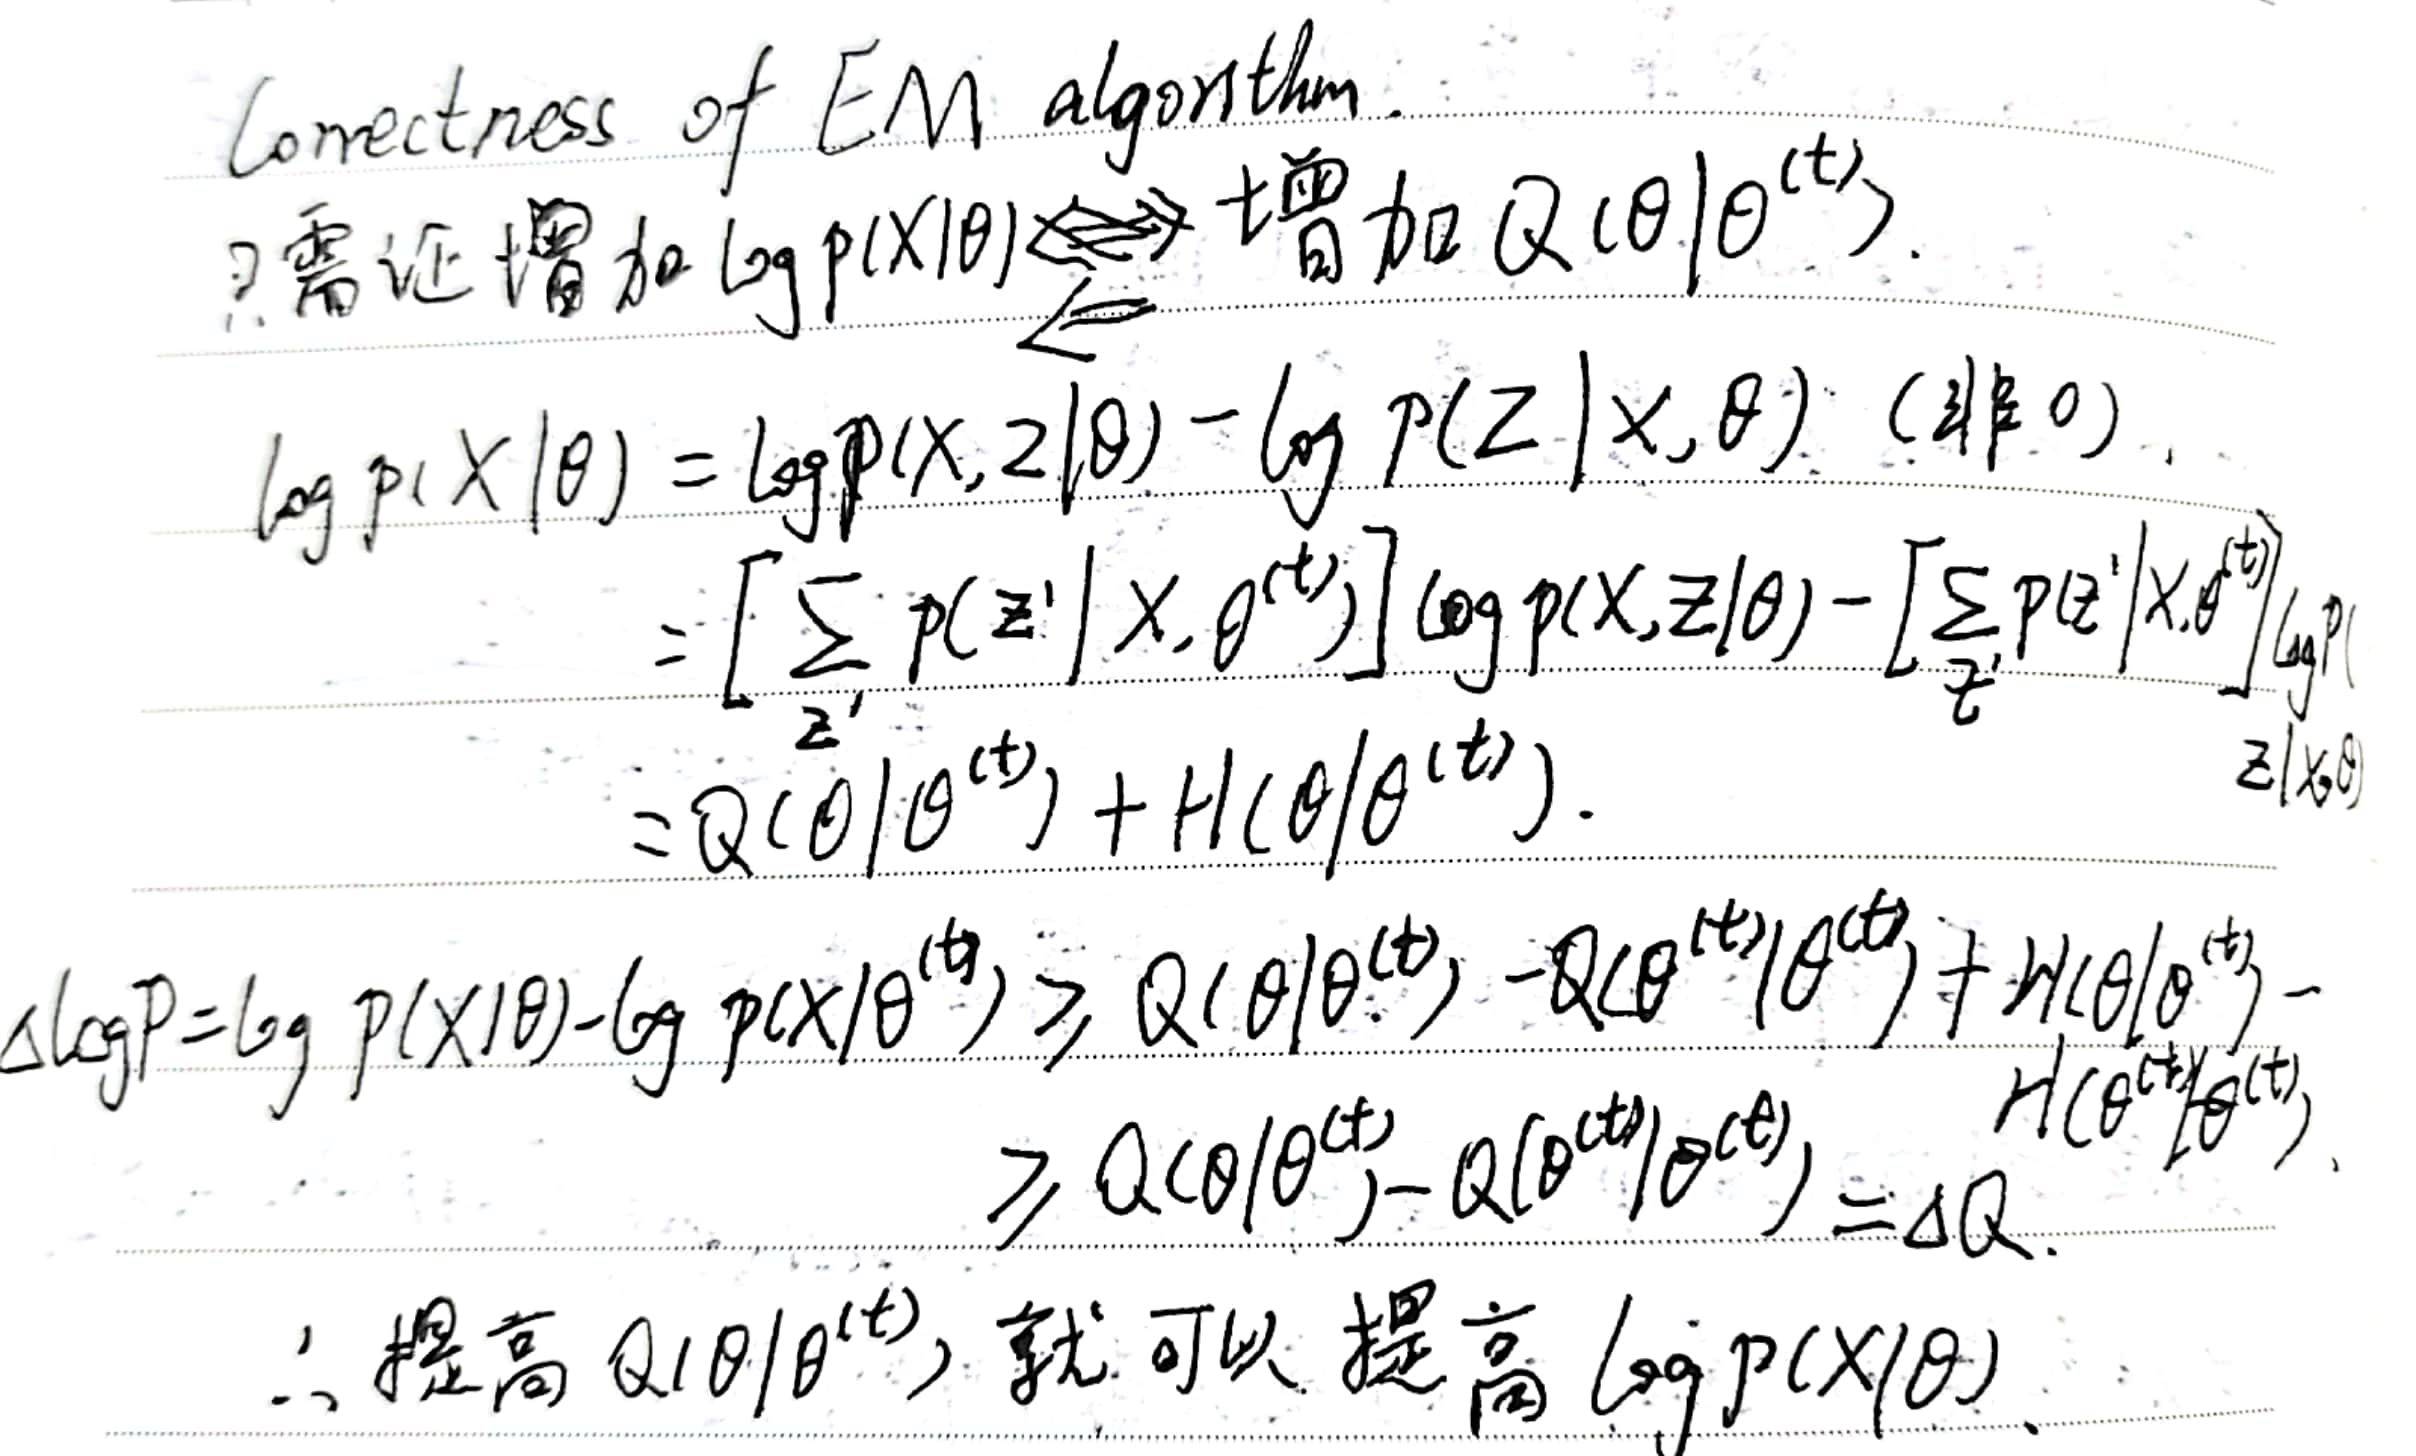 Correctness of EM algorithm.
只需证增加 log p(X|θ) ⇐ 增加 Q(θ|θ^(t)).
log p(X|θ) = log p(X,z|θ) - log P(Z|X,θ). (非0).
= [∑_{z'} p(z'|X,θ^(t))] log p(X,z|θ) - [∑_{z'} p(z'|X,θ^(t))] log P(
z|X,θ)
= Q(θ|θ^(t)) + H(θ|θ^(t)).
Δlog P = log p(X|θ) - log p(X|θ^(t)) ≥ Q(θ|θ^(t)) - Q(θ^(t)|θ^(t)) + H(θ|θ^(t)) -
H(θ^(t)|θ^(t)).
≥ Q(θ|θ^(t)) - Q(θ^(t)|θ^(t)) = ΔQ.
∴ 提高 Q(θ|θ^(t)), 就可以提高 log p(X|θ).